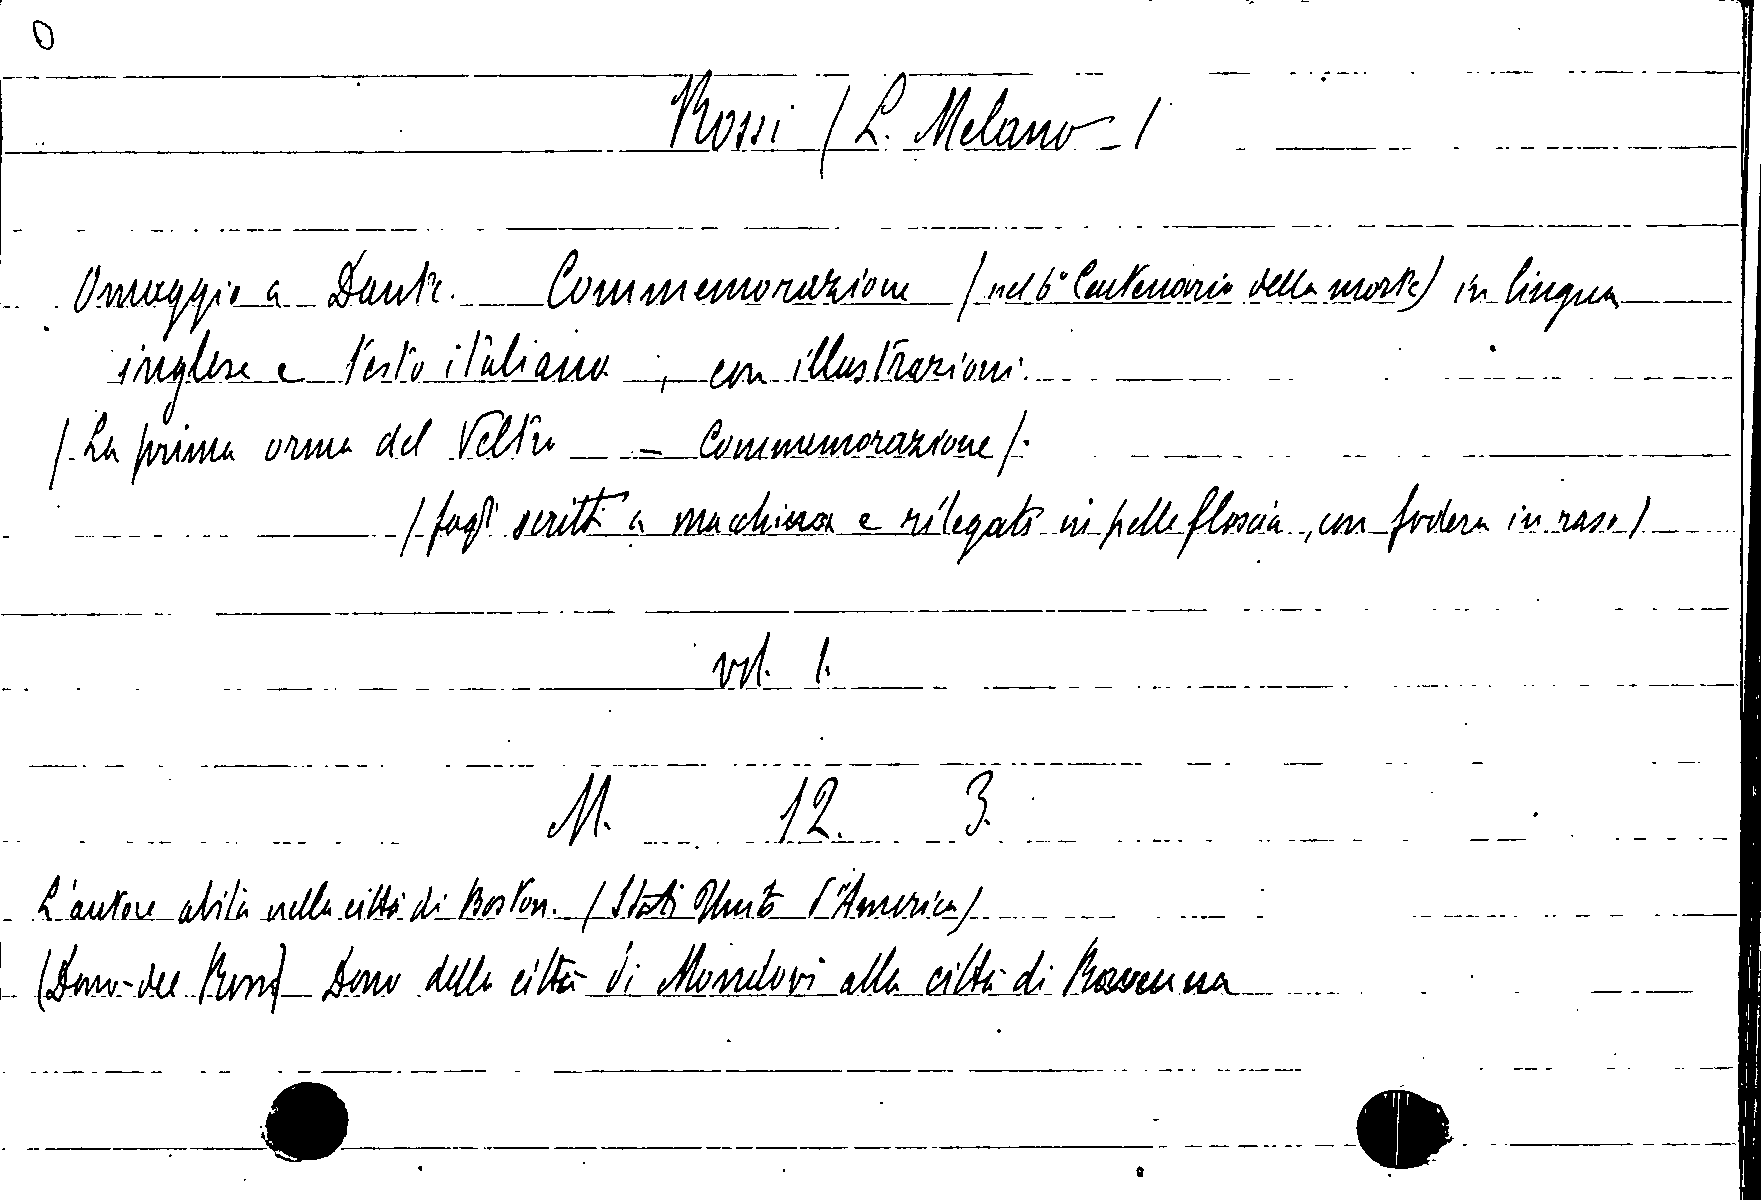 O
Rossi (L. Melano - )
Omaggio a Dante. Commemorazione (nel 6° Centenario della morte) in lingua
inglese e testo italiano, con illustrazioni.
(La prima orma del Veltro - Commemorazione).
(fogli scritti a macchina e rilegati in pelle floscia, con fodera in raso)
vol. 1.
M. 12. 3.
L'autore abita nella città di Boston. (Stati Uniti d'America)
(Dono del Rossi) Dono della città di Mondovì alla città di Ravenna